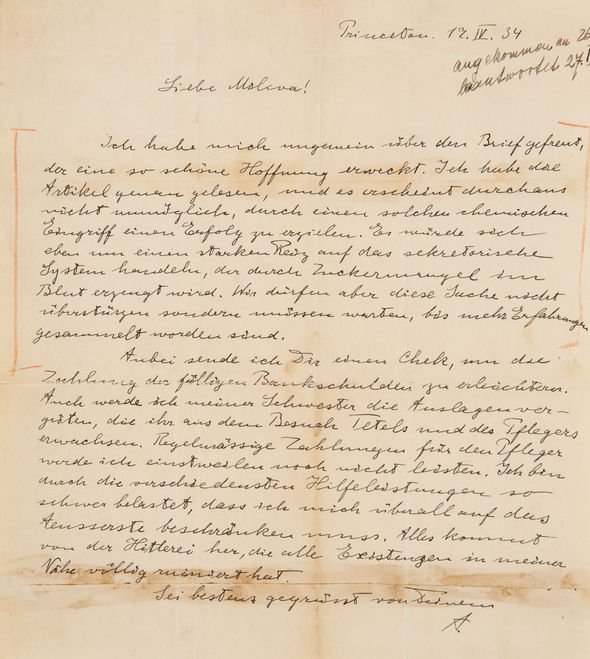 Princeton. 17. IV. 34
angekommen am 26
beantwortet 27.
Liebe Mileva!
Ich habe mich ungemein über den Brief gefreut,
der eine so schöne Hoffnung erweckt. Ich habe die
Artikel genau gelesen, und es erscheint durchaus
nicht unmöglich, durch einen solchen chemischen
Eingriff einen Erfolg zu erzielen. Es würde sich
eben um einen starken Reiz auf das sekretorische
System handeln, der durch Zuckermangel im
Blut erzeugt wird. Wir dürfen aber diese Sache nicht
überstürzen sondern müssen warten, bis mehr Erfahrungen
gesammelt worden sind.
Anbei sende ich Dir einen Chek, um die
Zahlung der fälligen Bankschulden zu erleichtern.
Auch werde ich meiner Schwester die Auslagen ver-
güten, die ihr aus dem Besuch Tetels und des Pflegers
erwachsen. Regelmässige Zahlungen für den Pfleger
werde ich einstweilen noch nicht leisten. Ich bin
durch die verschiedensten Hilfeleistungen so
schwer belastet, dass ich mich überall auf das
Aeusserste beschränken muss. Alles kommt
von der Hitlerei her, die alle Existenzen in meiner
Nähe völlig ruiniert hat.
Sei bestens gegrüsst von Deinem
A.